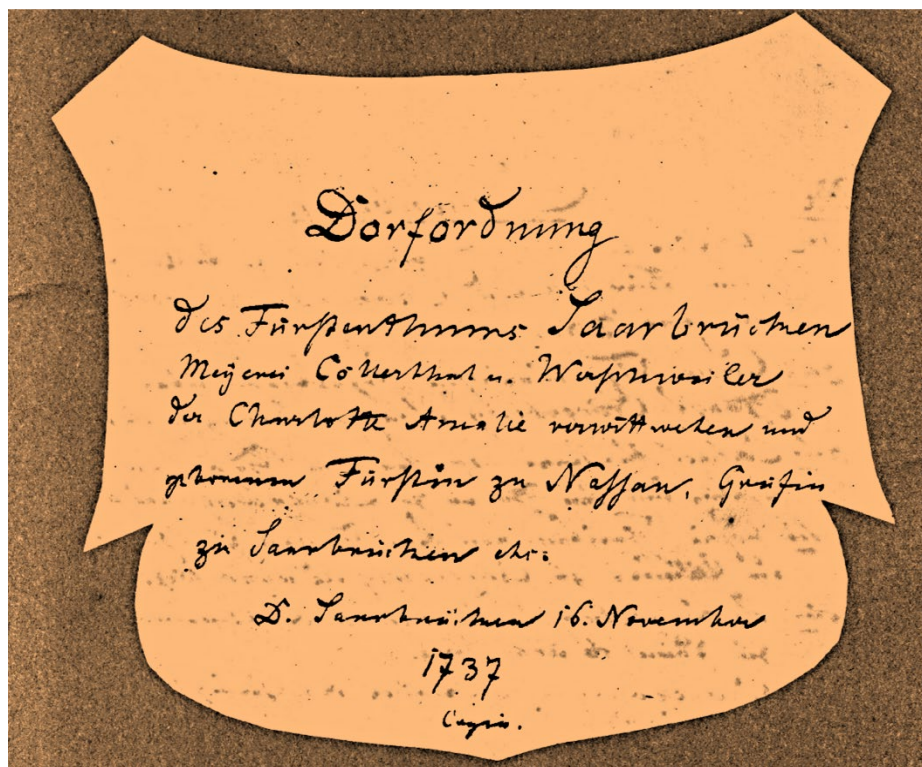 Dorfordnung
des Fürstenthums Saarbrücken
Meÿerei Cöllerthal u. Waßhweiler
der Charlotte Amalie verwittweten und
gebornenen Fürstin zu Nassau, Gräfin
zu Saarbrücken etc.
D. Saarbrücken 16. November
1737
Copia.